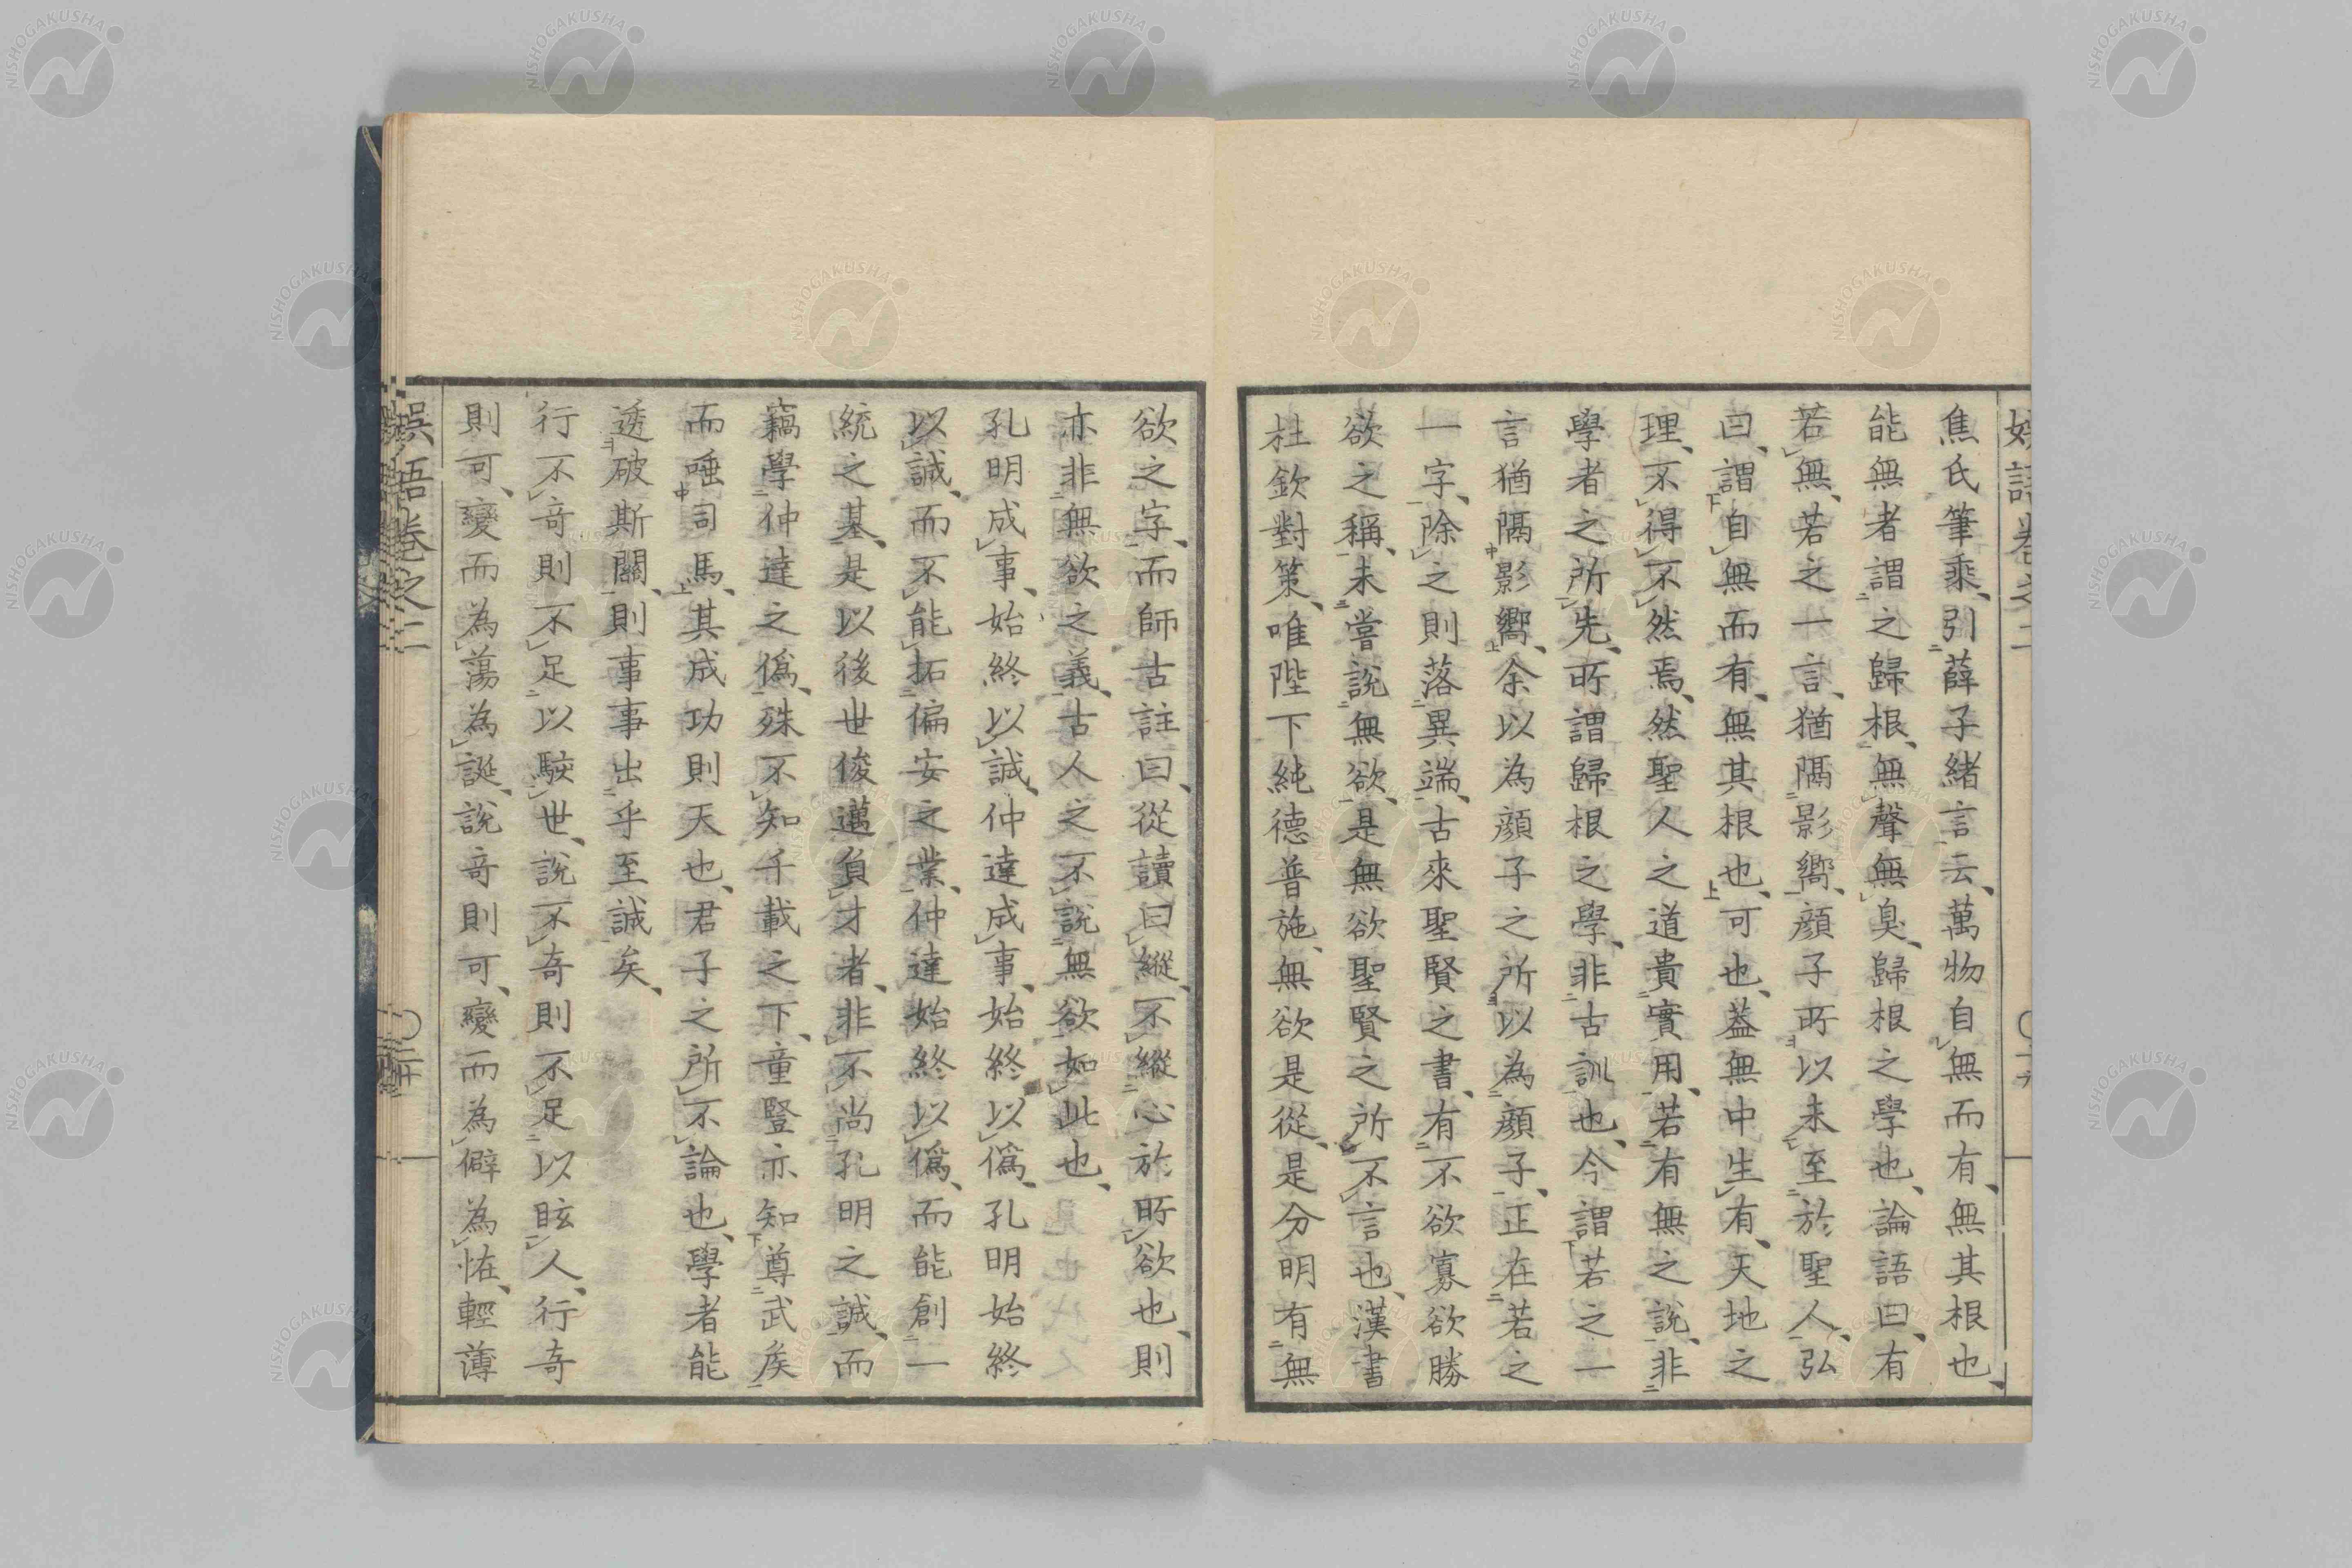 焦氏筆乘、引薛子緒言云、萬物自無而有、無其根也、
能無者謂之歸根、無聲無臭、歸根之學也、論語曰、有
若無、若之一言、猶隔影嚮、顔子所以未至於聖人、弘
曰、謂自無而有、無其根也、可也、葢無中生有、天地之
理、不得不然焉、然聖人之道貴實用、若有無之說、非
學者之所先、所謂歸根之學、非古訓也、今謂若之一
言猶隔影嚮、余以為顔子之所以為顔子、正在若之
一字、除之則落異端、古來聖賢之書、有不欲寡欲勝
欲之稱、未嘗說無欲、是無欲聖賢之所不言也、漢書
杜欽對策、唯陛下純德普施、無欲是從、是分明有無
欲之字、而師古註曰、從讀曰縱、不縱心於所欲也、則
亦非無欲之義、古人之不說無欲如此也、
孔明成事、始終以誠、仲達成事、始終以僞、孔明始終
以誠、而不能拓偏安之業、仲達始終以僞、而能創一
統之基、是以後世俊邁負才者、非不尚孔明之誠、而
竊學仲達之僞、殊不知千載之下、童豎亦知尊武矦
而唾司馬、其成功則天也、君子之所不論也、學者能
透破斯關、則事事出乎至誠矣、
行不奇則不足以駭世、說不奇則不足以眩人、行奇
則可、變而為蕩為誕、說奇則可、變而為僻為怪、輕薄
卷之二